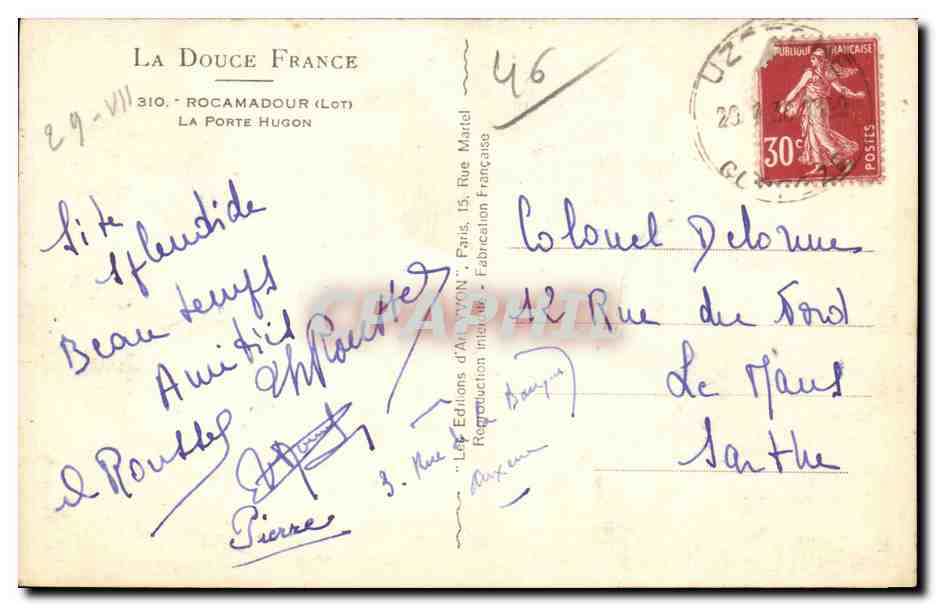 LA DOUCE FRANCE
310. - ROCAMADOUR (LOT)
LA PORTE HUGON
29-VII
46
Site
splendide
Beau temps
Amitiés
Roussel
Roussel
Pierre
3. Rue de la Banque
"Les Editions d'Art YVON". Paris, 15, Rue Martel
Reproduction interdite - Fabrication Française
CPAPHIL
UZ
RÉPUBLIQUE FRANÇAISE
30c
POSTES
Colonel Delorme
12 Rue du Nord
Le Mans
Sarthe